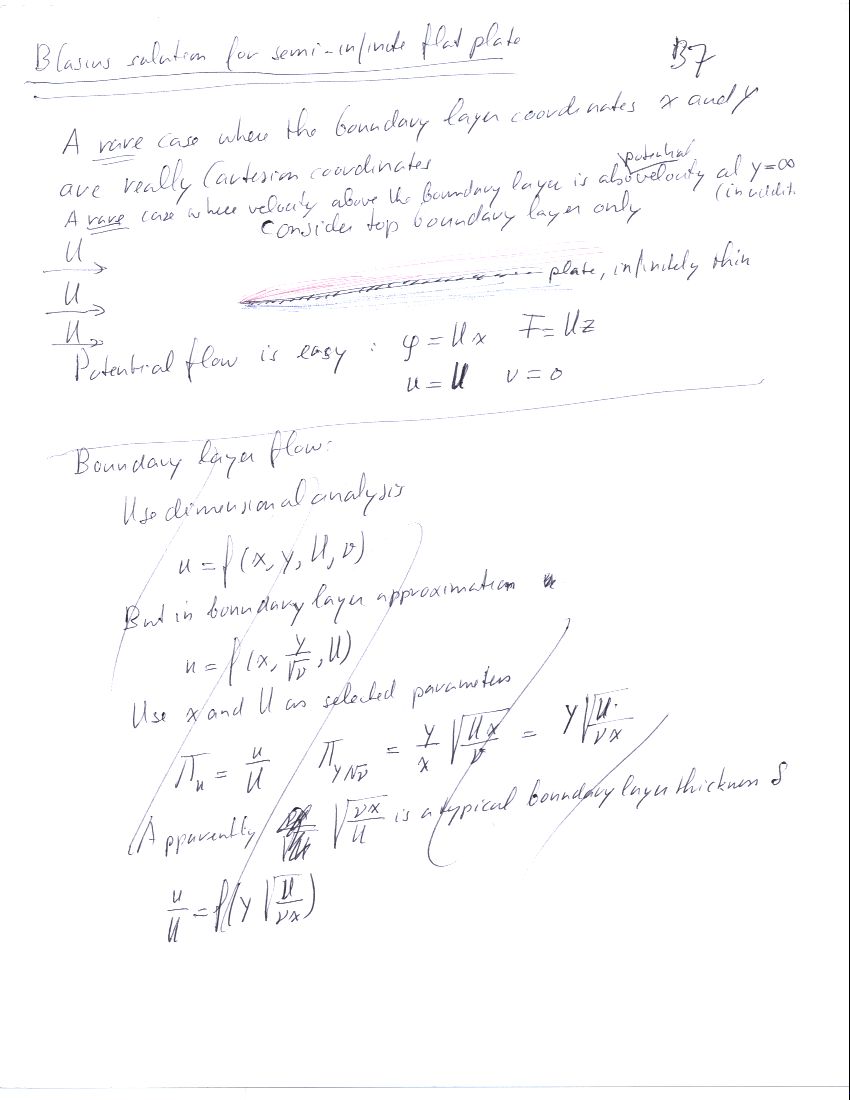 Blasius solution for semi-infinite flat plate
B7
A rare case where the boundary layer coordinates x and y
are really Cartesian coordinates
A rare case where velocity above the boundary layer is also potential velocity at y=∞
(in addit.
Consider top boundary layer only
U
U
U
plate, infinitely thin
Potential flow is easy: φ = Ux F = Uz
u = U v = 0
Boundary layer flow:
Use dimensional analysis
u = f(x, y, U, ν)
But in boundary layer approximation
u = f(x, y/√ν, U)
Use x and U as selected parameters
Π_u = u/U Π_{y/√ν} = y/x √(Ux/ν) = y√(U/νx)
(Apparently √(νx/U) is a typical boundary layer thickness δ
u/U = f(y√(U/νx))